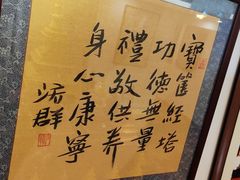 寶篋經塔
功德無量
禮敬供养
身心康寧